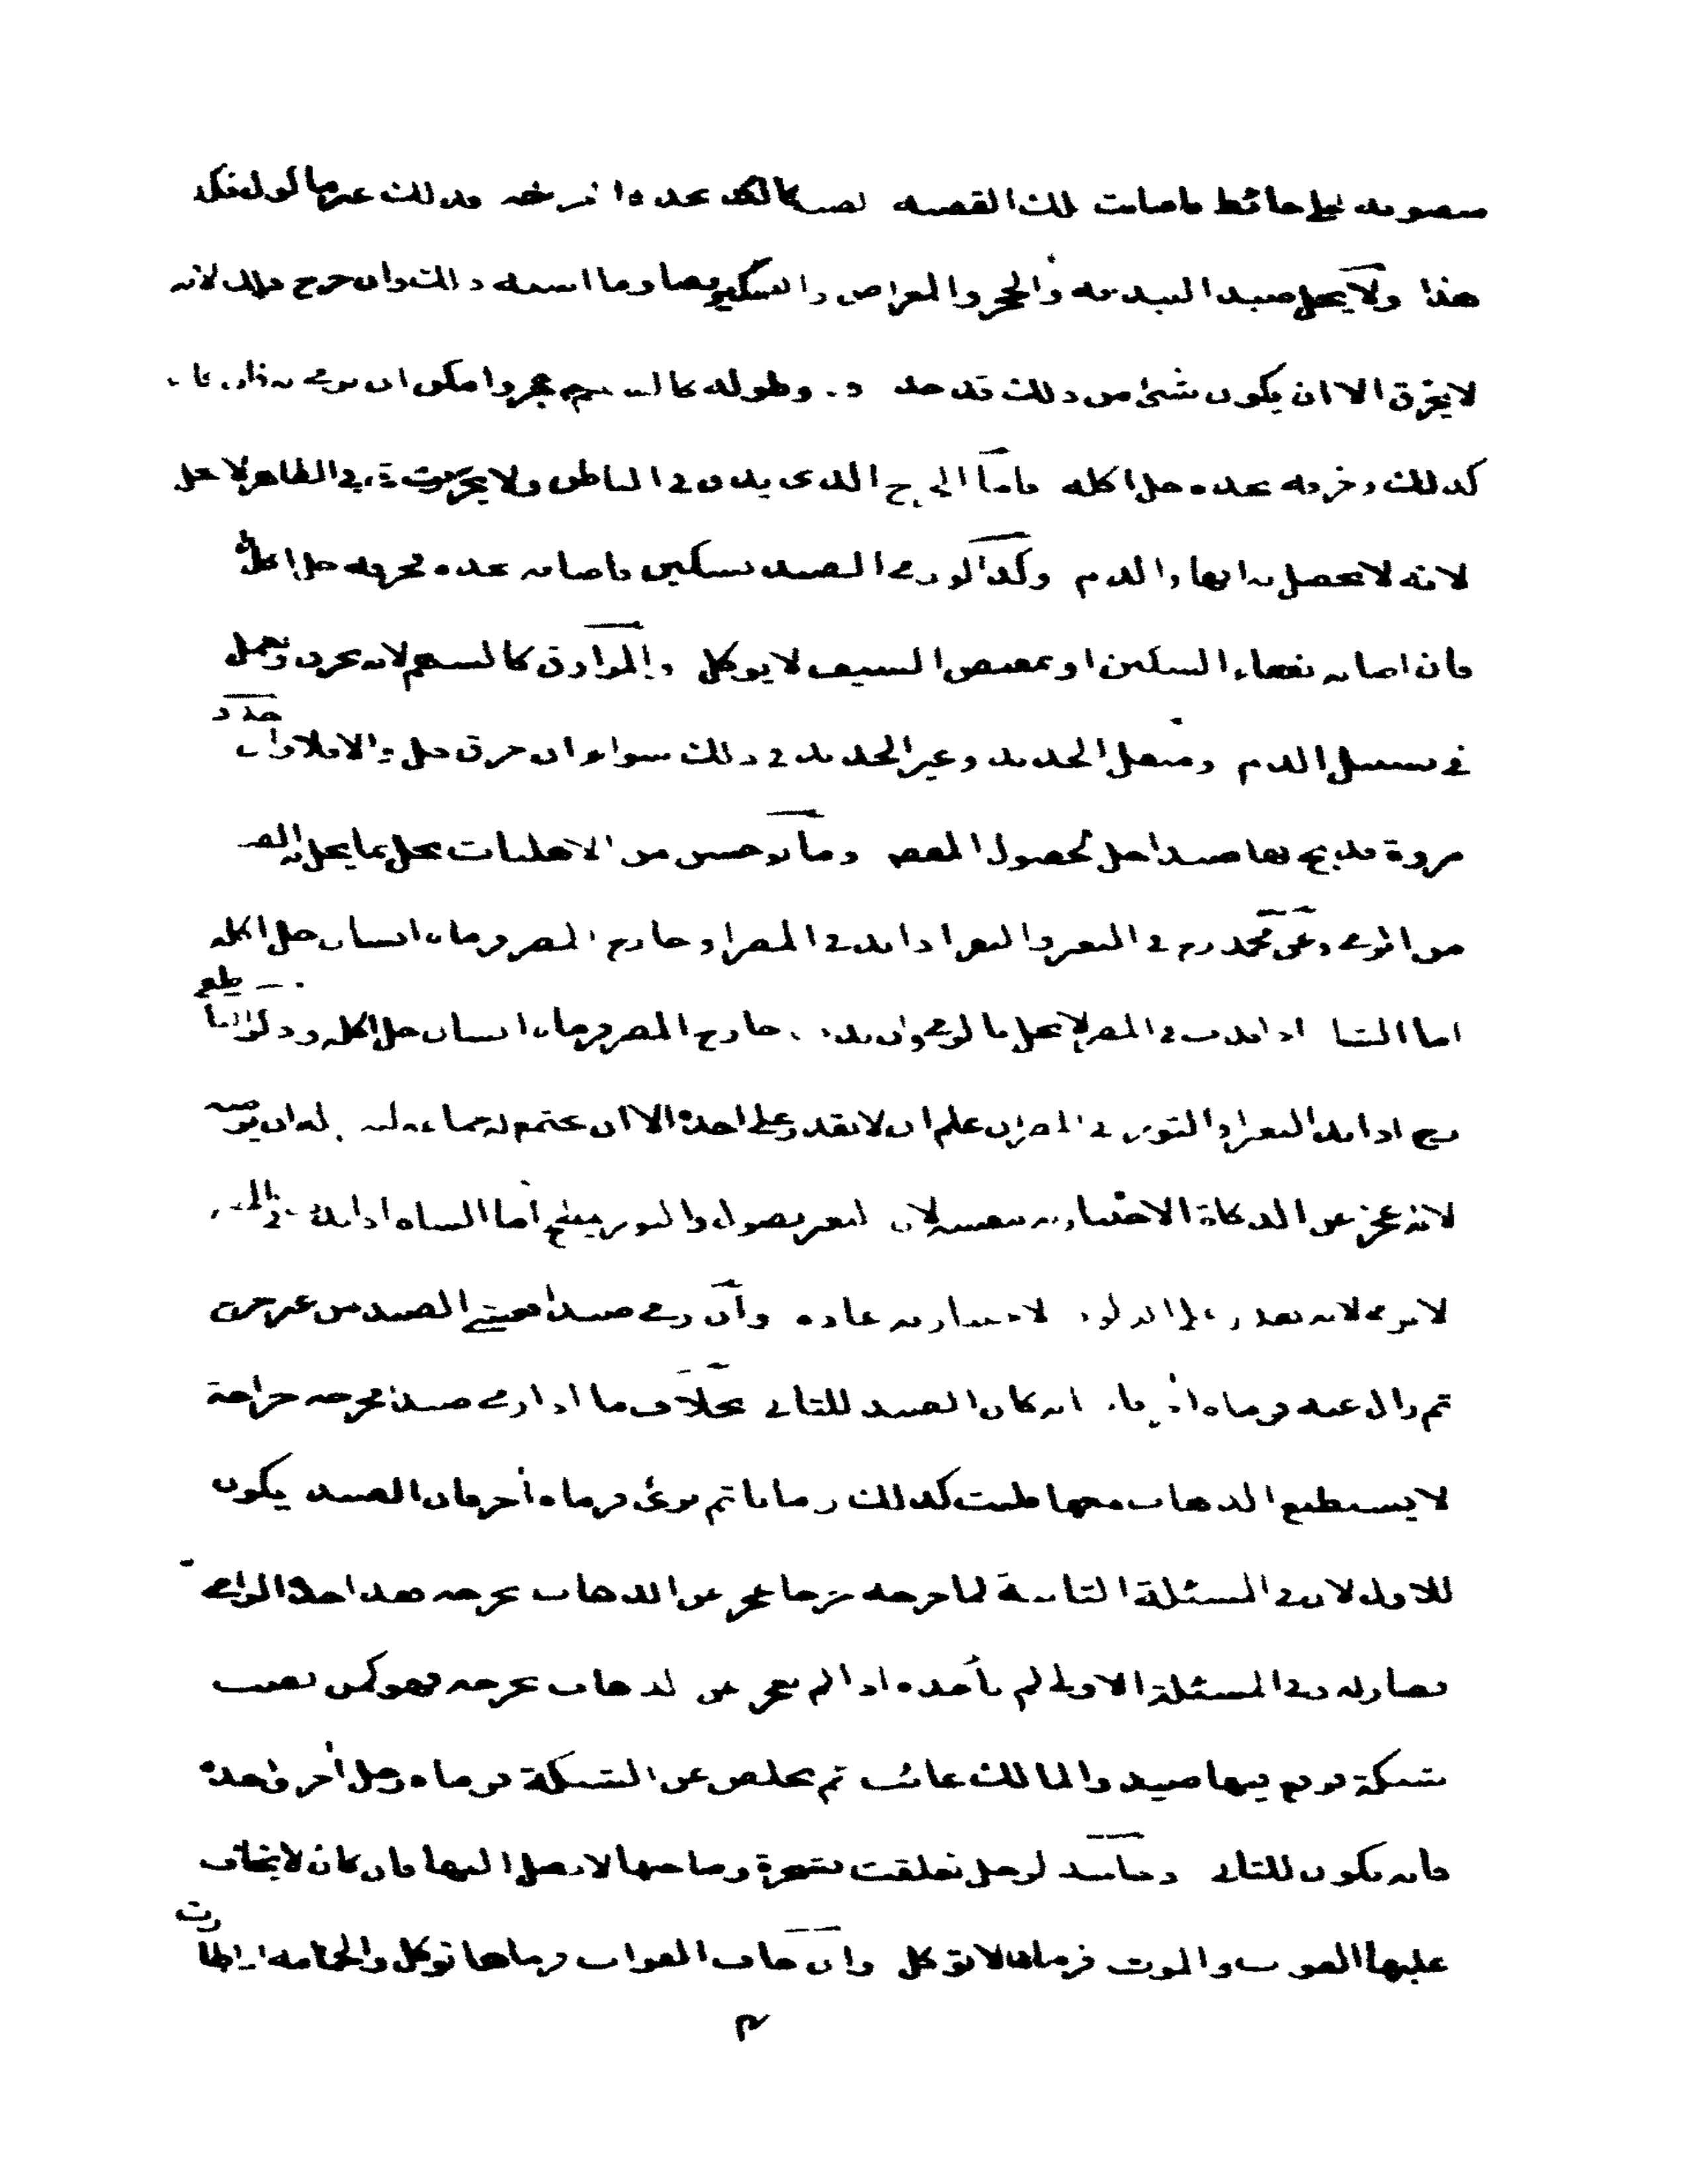 منصوبة على حائط فاصابت تلك القصبة بحده وذلك غير ما
هذا ولا يحل صيد البندقة والحجر والمعراض والعصا وما اشبه ذلك وان جرح ذلك لانه
لا يخزق الا ان يكون شئ من ذلك قد حدد وطوله كالسهم وامكن ان يرمى به فان كان
كذلك وخزقه بحده حل اكله فاما الجرح الذى يدق فى الباطن ولا يخرق فى الظاهر لا يحل
لانه لا يحصل به انهار الدم وكذا لو رمى الصيد بسكين فاصابه بحده فجرحه حل اكله
فان اصابه بقفاء السكين او بمقبض السيف لا يوكل والمزراق كالسهم لانه يخرق ويعمل
فى تسييل الدم ومثقل الحديد وغير الحديد فى ذلك سواء ان خزق حل والا فلا وان حدد
مروة فذبح بها صيدا حل لحصول المقصود وما توحش من الاهليات يحل بما يحل به الصيد
من الرمى وعن محمد رح فى البعير والبقر اذا ند فى المصر او خارج المصر فرماه انسان حل اكله
اما الشاة اذا ندت فى المصر لا يحل بالرمى وان ند خارج المصر فرماه انسان حل اكله
اذا ند البعير او الثور فى المصر ان علم ان لا يقدر على اخذه الا ان يجتمع له جماعة له ان يرميه
لانه عجز عن الذكاة الاختيارية بنفسه لان البعير يصول والثور ينطح اما الشاة اذا ندت فى المصر
لا يرمى لانه يقدر على الذكوة الاختيارية عادة وان رمى صيدا فغشى الصيد من غير جرح
ثم زال عنه فرماه اخر كان الصيد للثانى بخلاف ما اذا رمى صيدا فجرحه جراحة
لا يستطيع الذهاب معها فلبث كذلك زمانا ثم برئ فرماه اخر فان الصيد يكون
للاول لان فى المسئلة الثانية لما جرحه جرحا عجز عن الذهاب بجرحه فقد اخذه الرامى
فصار له وفى المسئلة الاولى لم يأخذه اذا لم يعجز عن الذهاب بجرحه فهو كمن نصب
شبكة فوقع فيها صيد والمالك غائب ثم تخلص عن الشبكة فرماه رجل اخر واخذه
فانه يكون للثانى دجاجة لرجل تعلقت بشجرة وصاحبها لا يصل اليها فان كان لا يخاف
عليها الفوت والموت فرماها لا توكل وان خاف الفوات فرماها توكل والحمامة اذا طارت